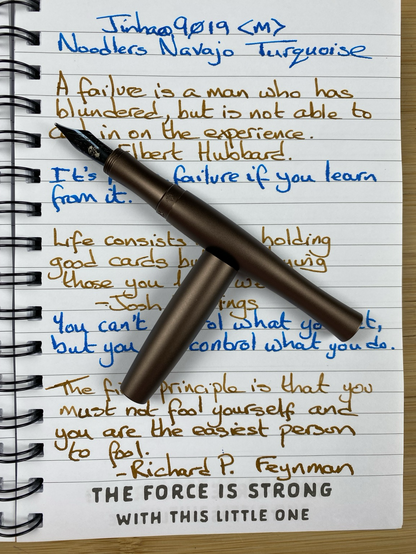 Jinhao 9019 <M>
Noodlers Navajo Turquoise
A failure is a man who has
blundered, but is not able to
in on the experience.
Elbert Hubbard.
It's failure if you learn
from it.
Life consists holding
good cards but
those you
-Josh
You can't what
but you control what you do.
The principle is that you
must not fool yourself and
you are the easiest person
to fool.
-Richard P. Feynman
THE FORCE IS STRONG
WITH THIS LITTLE ONE